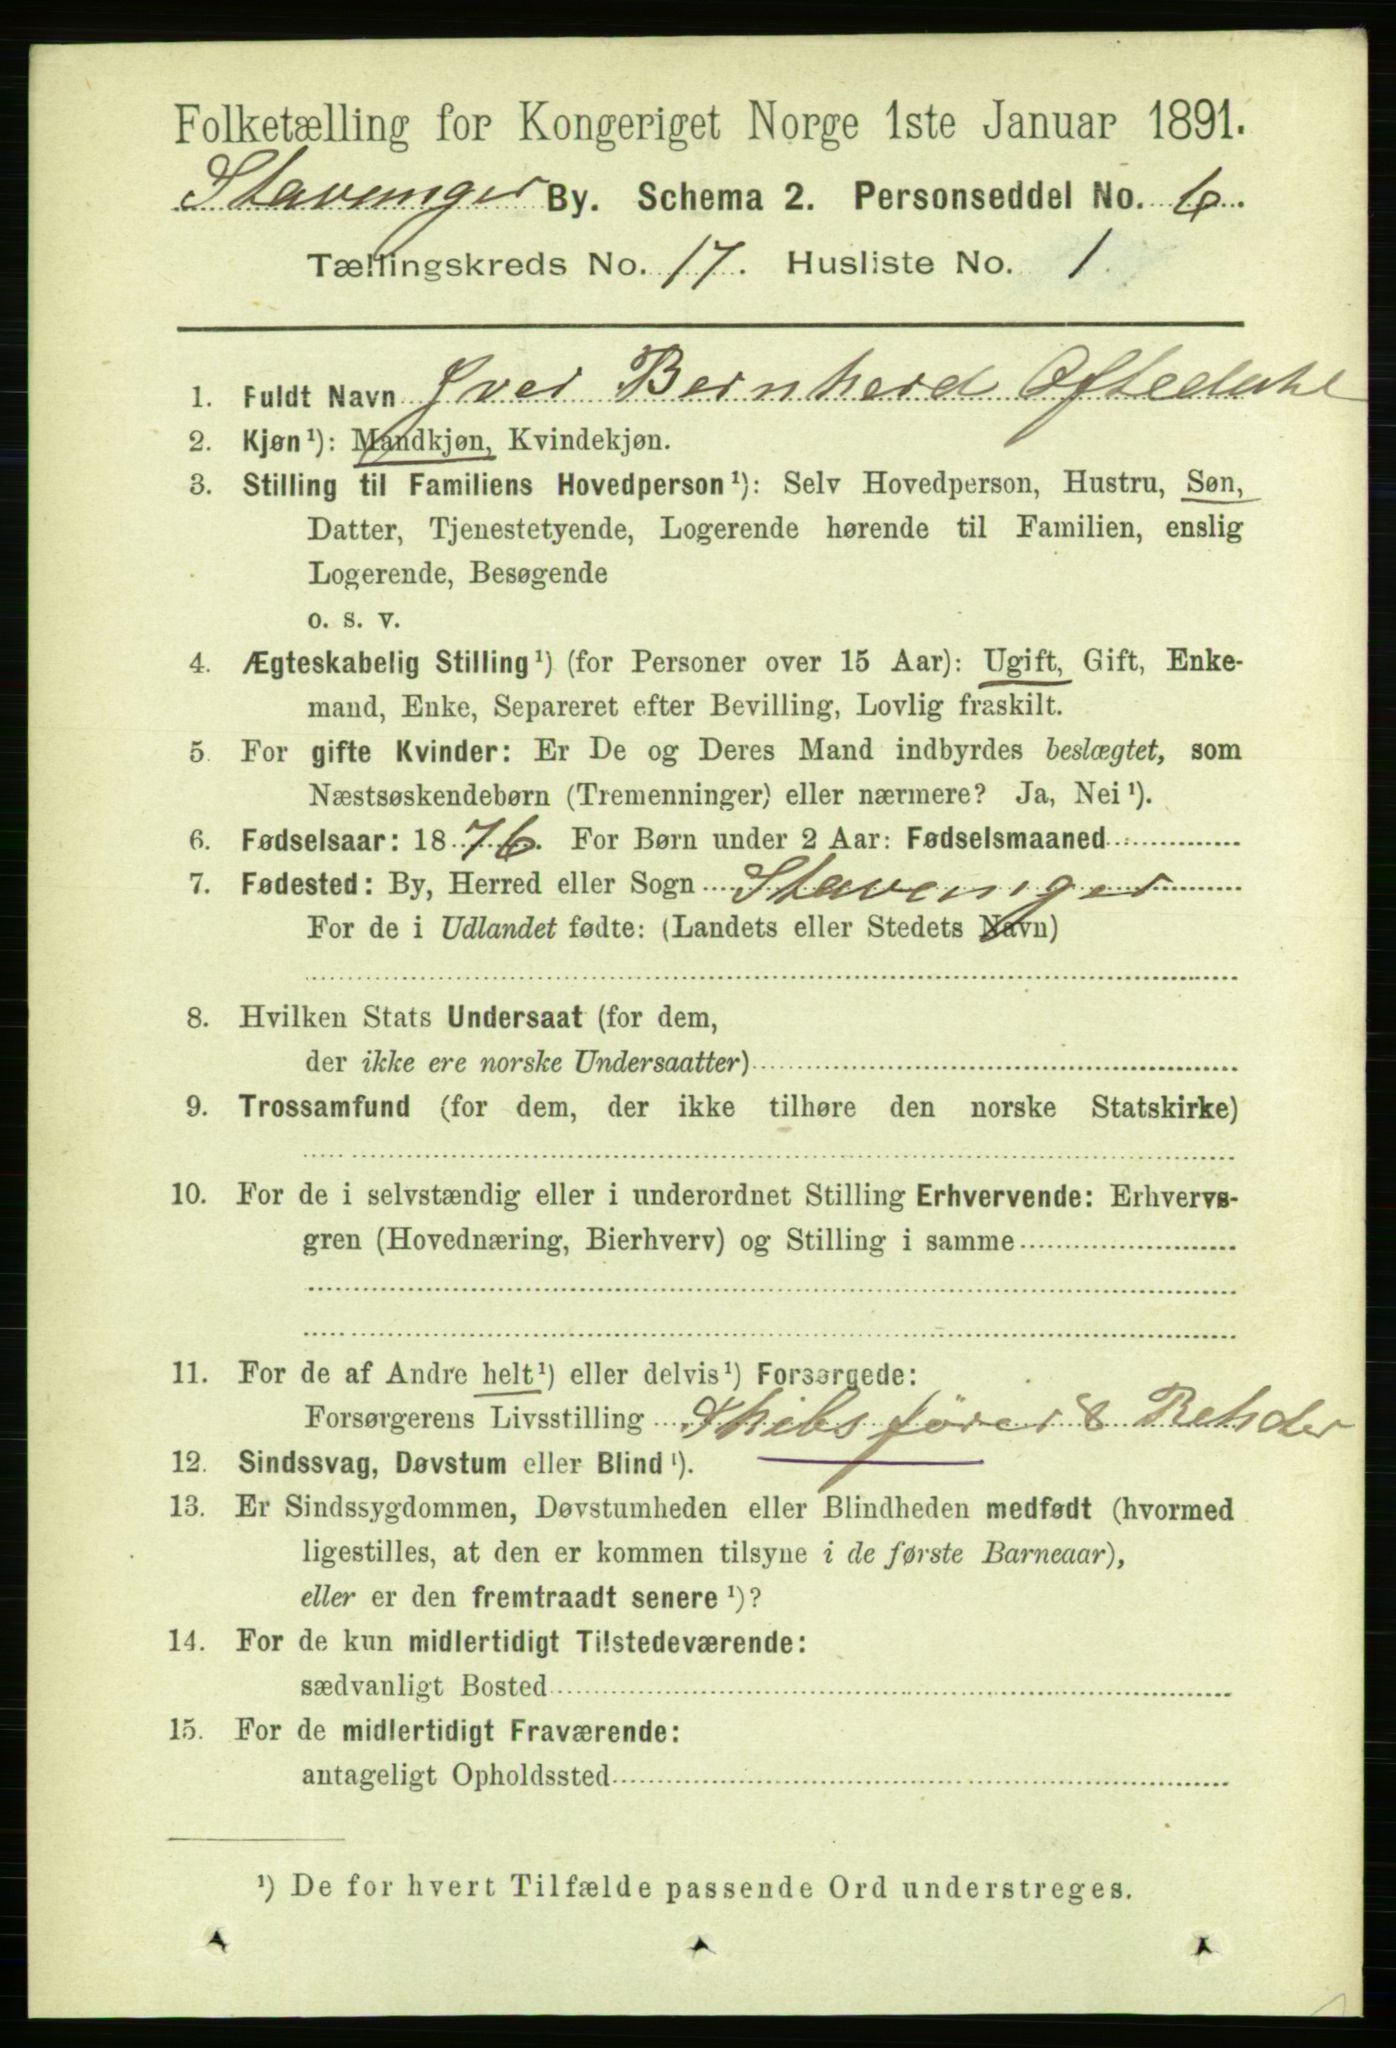 Folketælling for Kongeriget Norge 1ste Januar 1891.
Stavanger By. Schema 2. Personseddel No. 6.
Tællingskreds No. 17. Husliste No. 1.
1. Fuldt Navn Iver Bernherd Oftedahl
2. Kjøn¹): Mandkjøn, Kvindekjøn.
3. Stilling til Familiens Hovedperson¹): Selv Hovedperson, Hustru, Søn,
Datter, Tjenestetyende, Logerende hørende til Familien, enslig
Logerende, Besøgende
o. s. v.
4. Ægteskabelig Stilling¹) (for Personer over 15 Aar): Ugift, Gift, Enke-
mand, Enke, Separeret efter Bevilling, Lovlig fraskilt.
5. For gifte Kvinder: Er De og Deres Mand indbyrdes beslægtet, som
Næstsøskendebørn (Tremenninger) eller nærmere? Ja, Nei¹).
6. Fødselsaar: 1876. For Børn under 2 Aar: Fødselsmaaned
7. Fødested: By, Herred eller Sogn Stavenger
For de i Udlandet fødte: (Landets eller Stedets Navn)
8. Hvilken Stats Undersaat (for dem,
der ikke ere norske Undersaatter)
9. Trossamfund (for dem, der ikke tilhøre den norske Statskirke)
10. For de i selvstændig eller i underordnet Stilling Erhvervende: Erhvervs-
gren (Hovednæring, Bierhverv) og Stilling i samme
11. For de af Andre helt¹) eller delvis¹) Forsørgede:
Forsørgerens Livsstilling Skibsförer & Rehder
12. Sindssvag, Døvstum eller Blind¹).
13. Er Sindssygdommen, Døvstumheden eller Blindheden medfødt (hvormed
ligestilles, at den er kommen tilsyne i de første Barneaar),
eller er den fremtraadt senere¹)?
14. For de kun midlertidigt Tilstedeværende:
sædvanligt Bosted
15. For de midlertidigt Fraværende:
antageligt Opholdssted
¹) De for hvert Tilfælde passende Ord understreges.